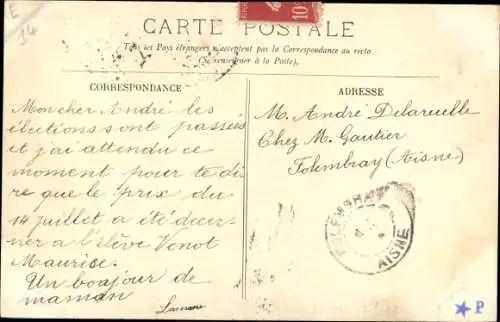 E
14
10
CARTE POSTALE
Tous les Pays étrangers n'acceptent pas la Correspondance au recto.
(Se renseigner à la Poste).
CORRESPONDANCE
Mon cher André les
élections sont passées
et j'ai attendu ce
moment pour te di
re que le prix du
14 juillet a été décer
ner a l'élève Venot
Maurice.
Un bonjour de
maman
ADRESSE
M. André Delaruelle
Chez M. Gautier
Folembray (Aisne)
FOLEMBRAY
AISNE
★ P